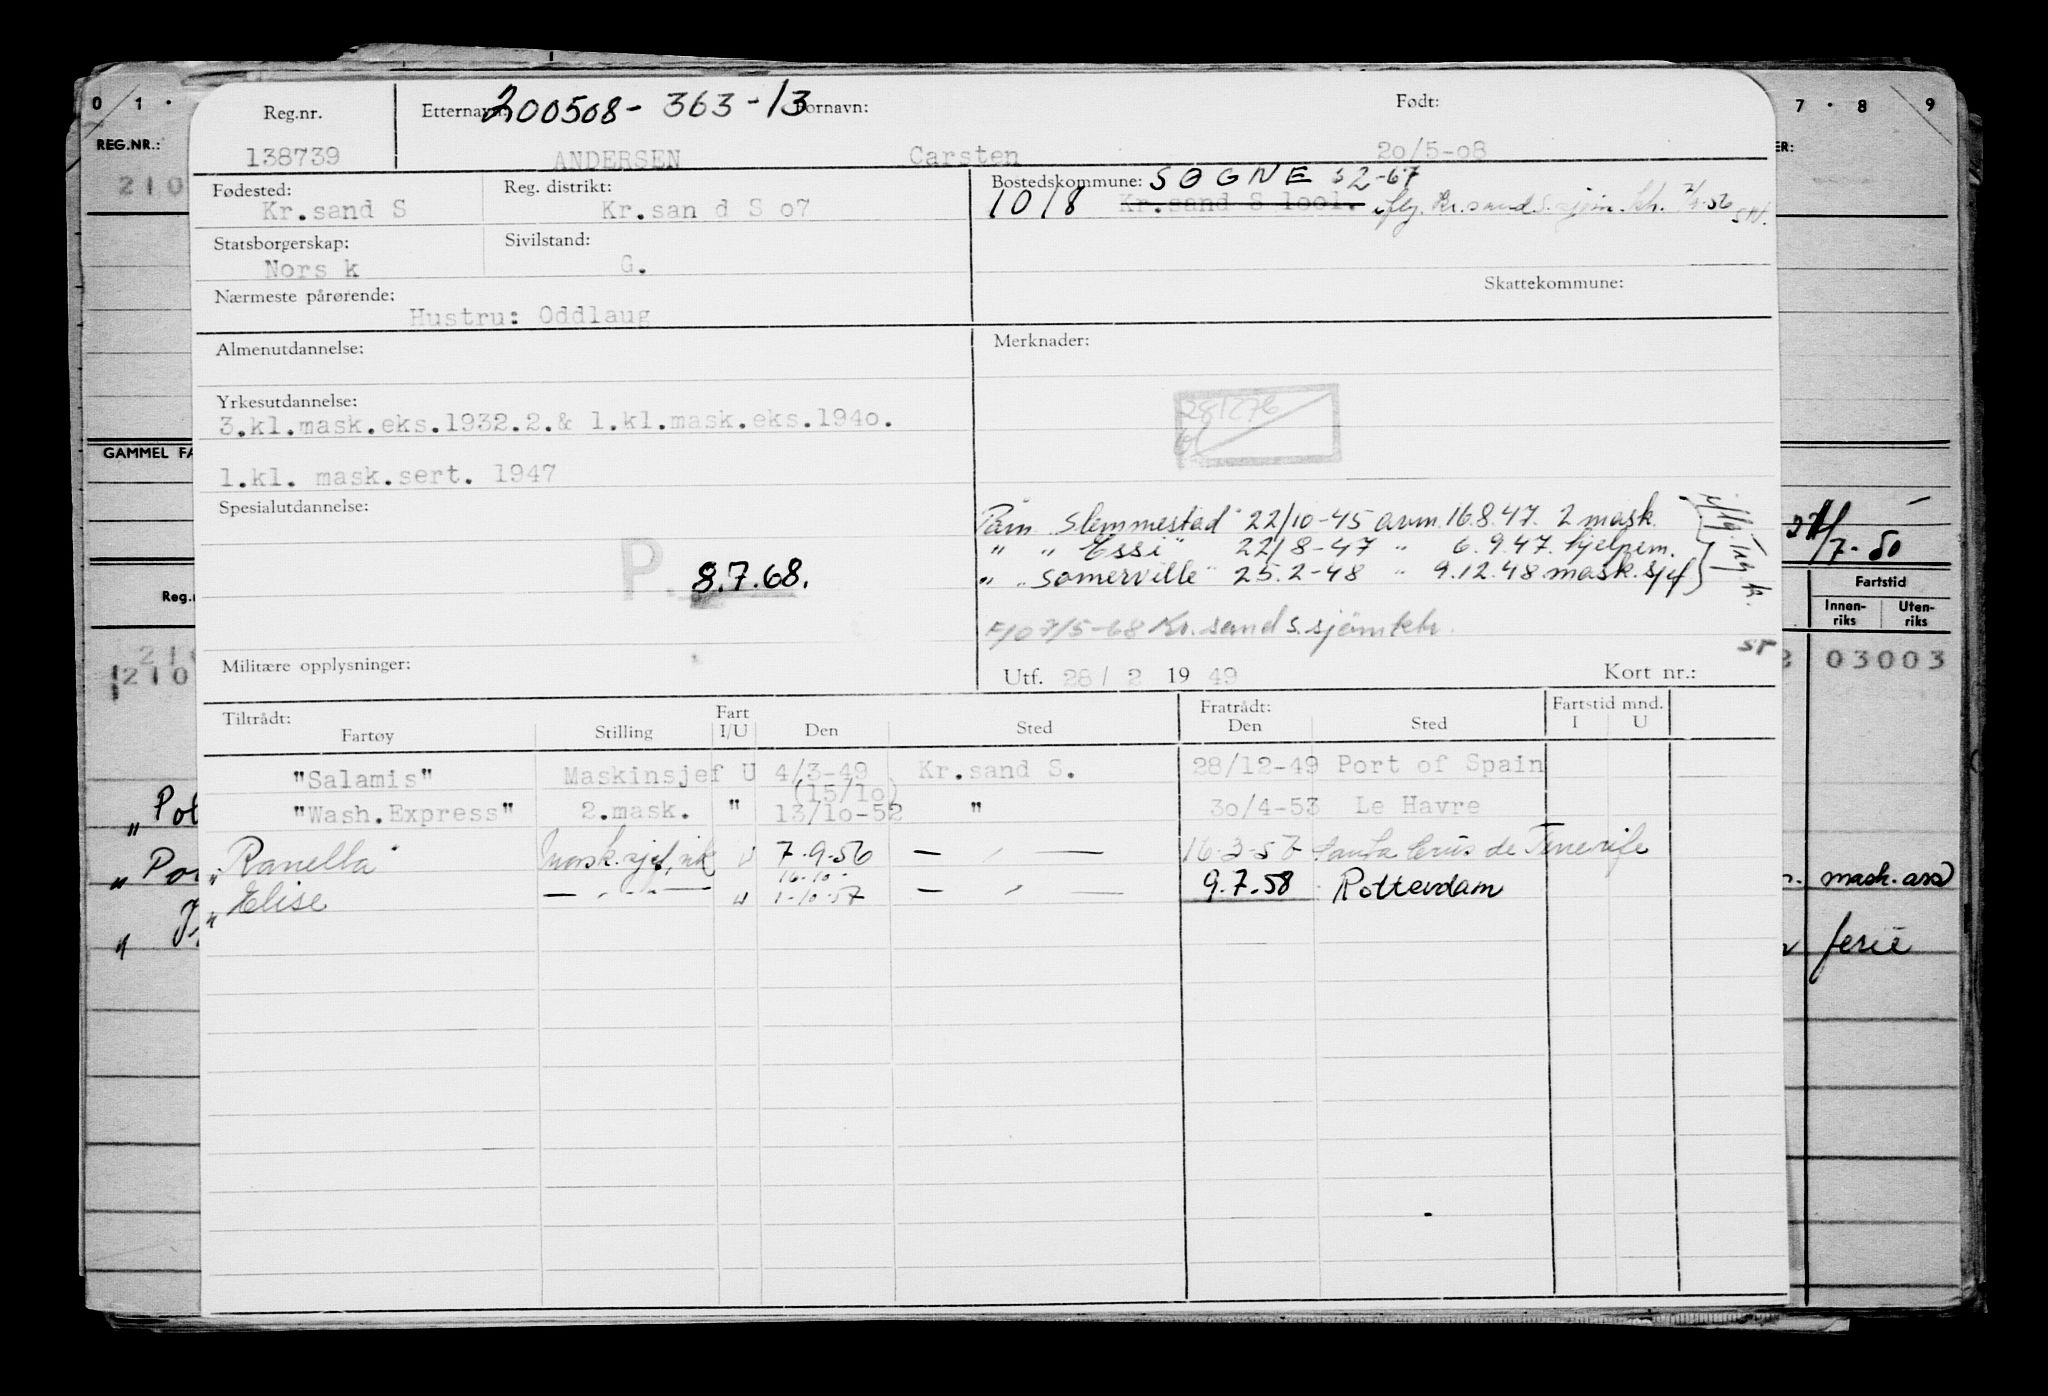 Reg.nr. Etternavn: 200508- 363 -13 Fornavn: Født:
138739 ANDERSEN Carsten 20/5-08
Fødested: Reg. distrikt: Bostedskommune: SØGNE 52-67
Kr.sand S Kr.san d S 07 1018 Kr.sand S 1001. iflg. Kr.sand.S. sjøm.kh.
Statsborgerskap: Sivilstand:
Nors k G.
Nærmeste pårørende: Skattekommune:
Hustru: Oddlaug
Almenutdannelse: Merknader:
Yrkesutdannelse:
3.kl.mask.eks.1932.2.& 1.kl.mask.eks.1940.
281276
1.kl. mask.sert. 1947
Spesialutdannelse:
Påm "Slemmestad" 22/10-45 avm. 16.8.47. 2 mask.
" " Essi" 22/8-47 " 6.9.47. hjelpem.
" "Somerville" 25.2-48 " 9.12.48. mask.sjef
P. 8.7.68.
F/O 7/5-68 Kr.sand s. sjömktr.
ST
Militære opplysninger: Utf. 28 / 2 19 49 Kort nr.:
Tiltrådt: Fartøy Stilling Fart I/U Den Sted Fratrådt: Den Sted Fartstid mnd. I U
"Salamis" Maskinsjef U 4/3-49 Kr.sand S. 28/12-49 Port of Spain
(15/10)
"Wash.Express" 2.mask. " 13/10-52 " 30/4-53 Le Havre
"Ranella" Mask.sjef, vik U 7.9.56 — " — 16-3-57 Santa Crus de Tenerife
16.10.
"Elise — " — U 1-10-57 — " — 9.7.58 Rotterdam
0 1 .
REG.NR.:
210
GAMMEL FA
Reg.n
210
"Pol
"Po
"
7 . 8 9
ER:
/7-50
Fartstid
Innen-riks Uten-riks
03003
mask. ass
ferie